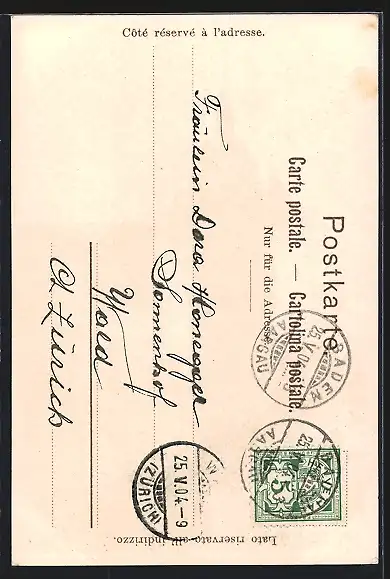 Postkarte
Carte postale. — Cartolina postale.
Nur für die Adresse
Côté réservé à l'adresse.
Lato riservato all'indirizzo.
Fräulein Dora Honegger
Sonnenhof
Wald
Ct Zürich
BADEN
25.V.04
AARGAU
25.V.04.-9
(ZÜRICH)
5